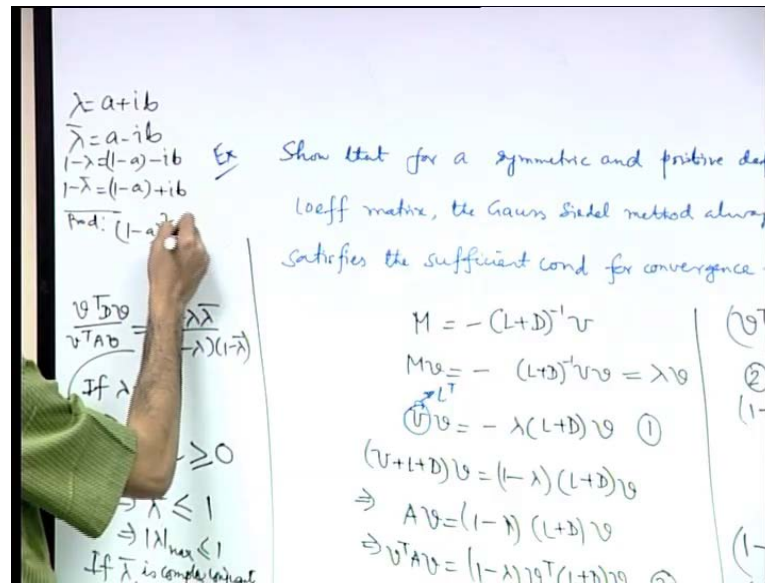 λ = a+ib
λ̄ = a-ib
1-λ = (1-a) - ib
1-λ̄ = (1-a) + ib
Prod: (1-a)²
vᵀDv / vᵀAv = λλ̄ -λ)(1-λ̄)
If λ
≥0
⇒ λ ≤ 1
⇒ |λ|max ≤ 1
If λ is complex
Ex Show that for a symmetric and positive def
Coeff matrix, the Gauss Siedel method alway
satisfies the sufficient cond for convergence
M = - (L+D)⁻¹ U
Mv = - (L+D)⁻¹Uv = λv
Lᵀ
Uv = - λ(L+D)v ①
(U+L+D)v = (1-λ)(L+D)v
⇒ Av = (1-λ)(L+D)v
⇒ vᵀAv = (1-λ)vᵀ(L+D)v
(vᵀ
②
(1-
(1-